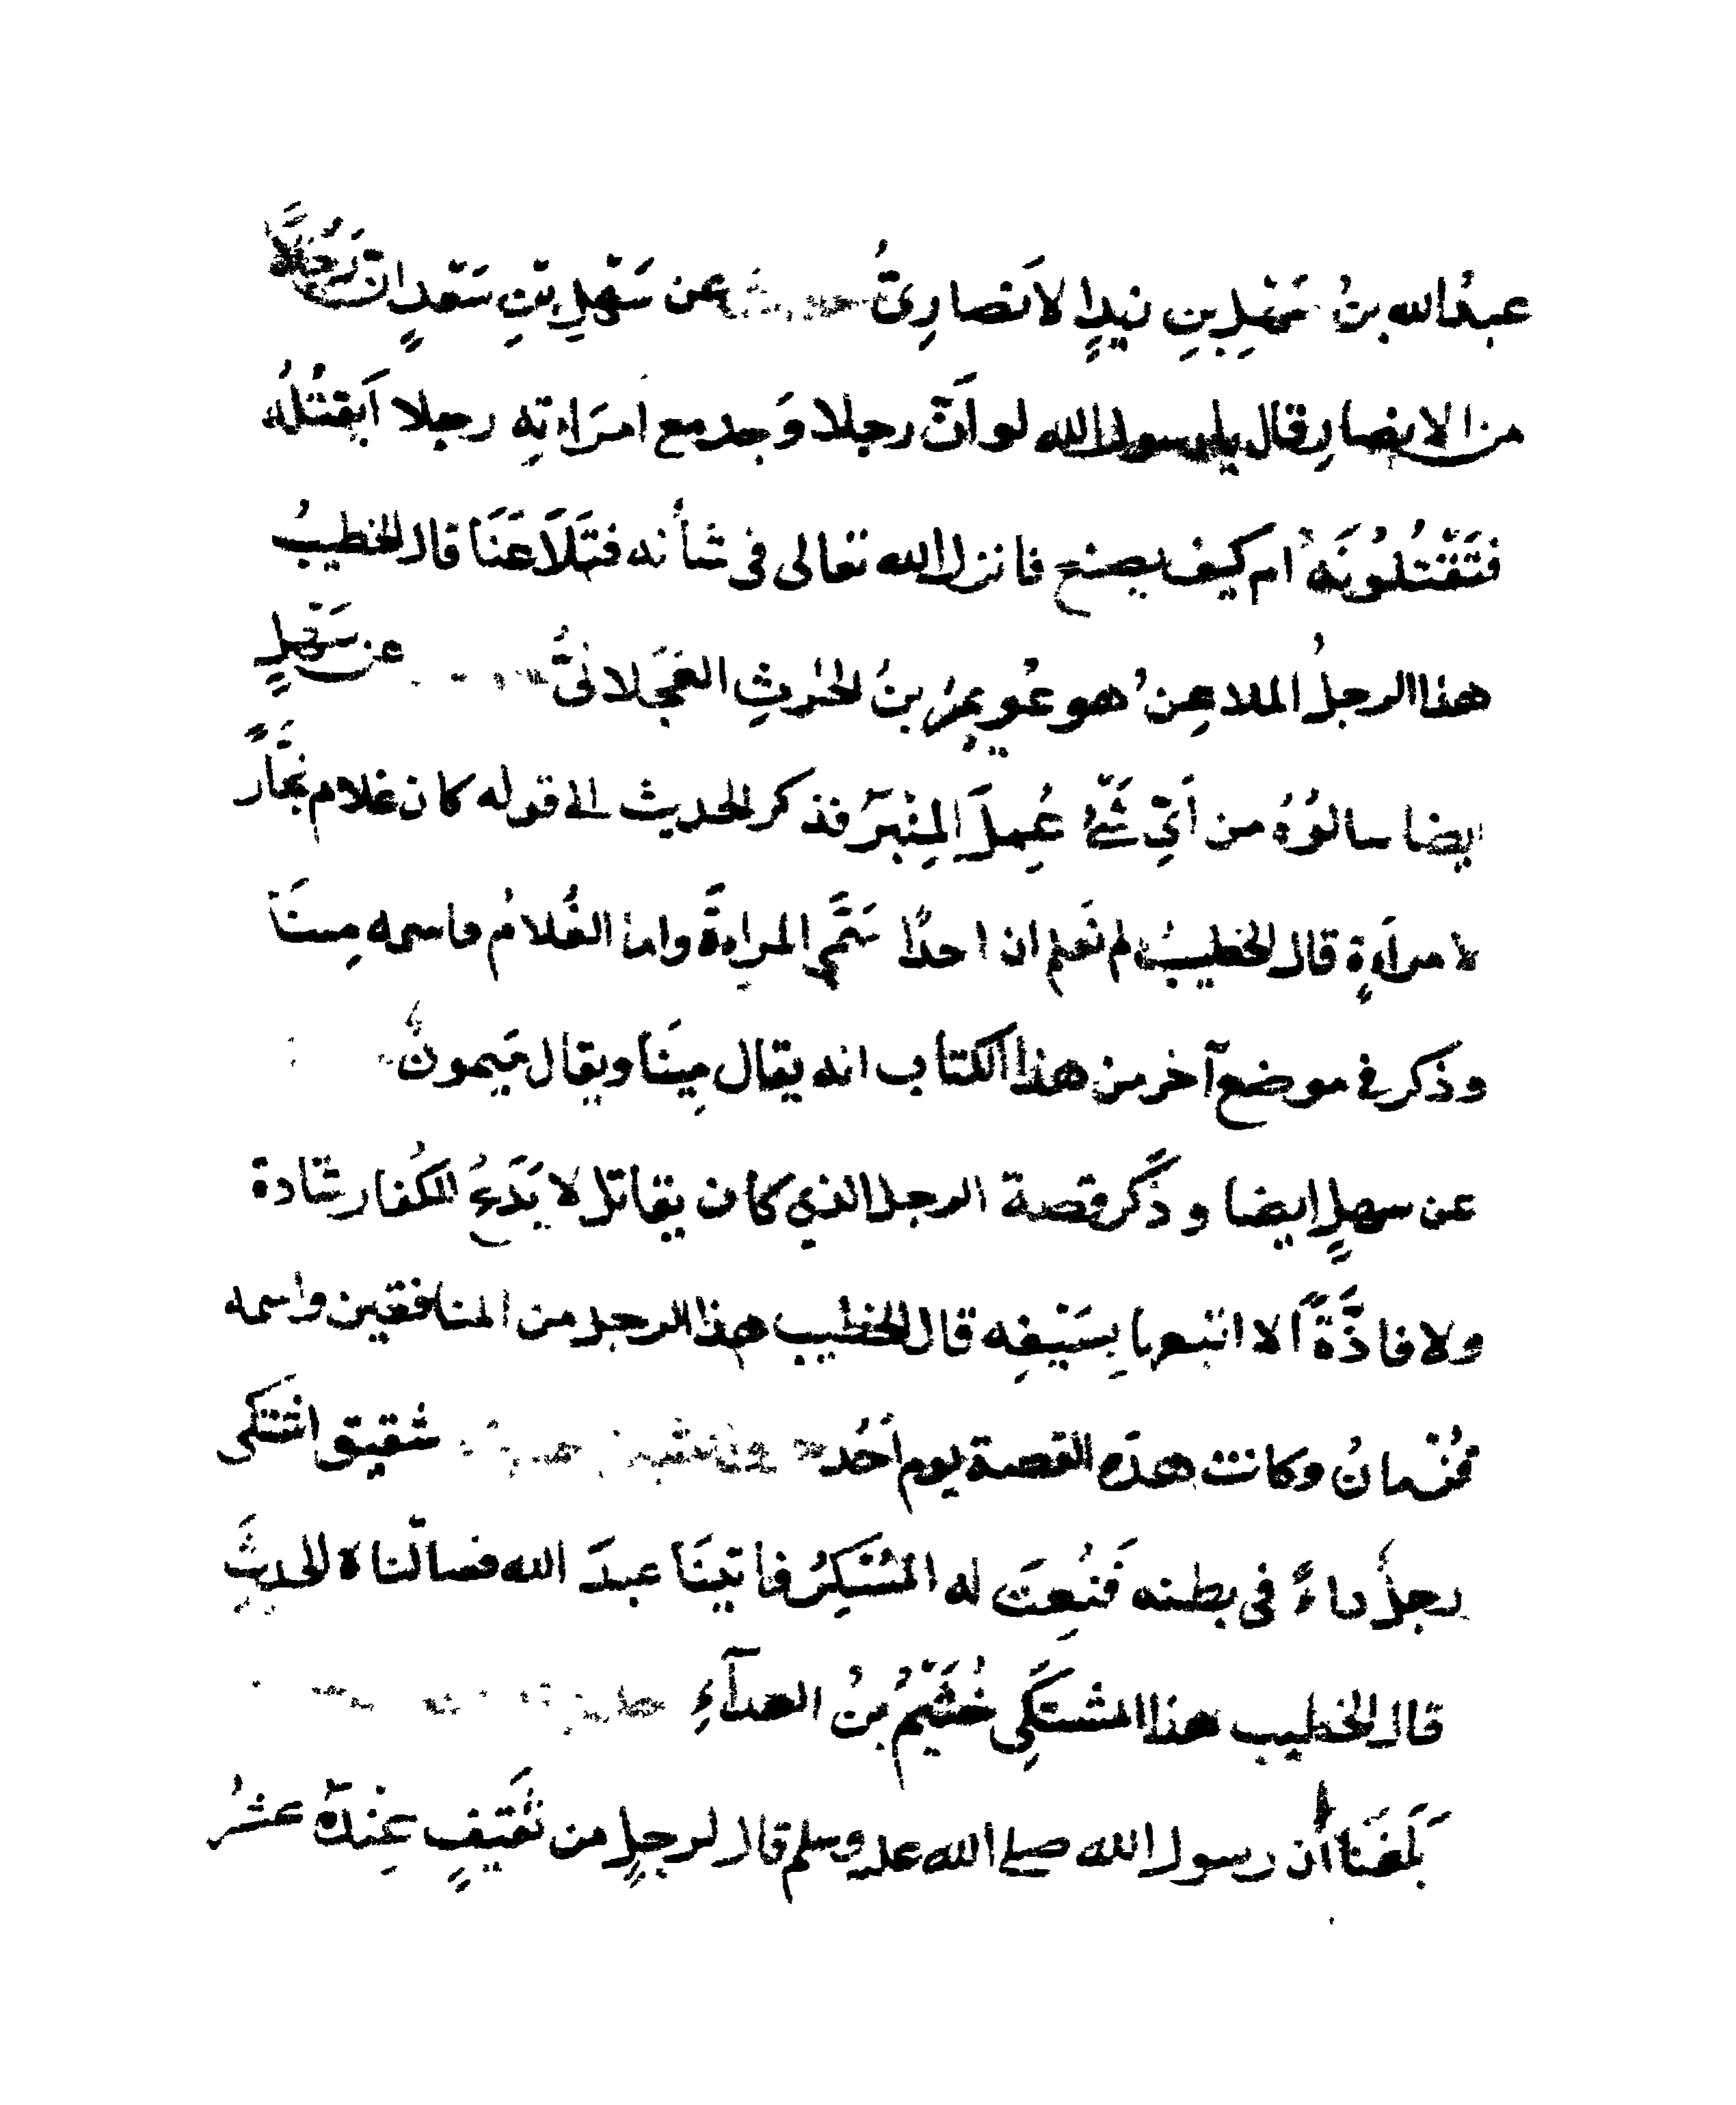 عبدُالله بنُ سَهْلِ بنِ زيدٍ الاَنصارِىُّ حديث عن سَهْلِ بْنِ سَعْدٍ انّ رَجُلًا
من الانصارِ قال يا رسول الله لو اَنّ رجلا وَجد مع امرَاءتِه رجلا اَيقتُلُه
فتَقْتُلُونَهُ ام كيف يصنع فانزل الله تعالى فى شأنه فتَلَاعَنَا قال الخطيبُ
هذا الرجلُ الملاعِنُ هو عُوَيمِرُ بنُ الحٰرثِ العَجَلانىُّ عن سَهْلٍ
ايضا سالوُهُ من اَىِّ شَىْءٍ عُمِلَ المِنْبَرُ فذكر الحديث الى قوله كان غلام نجَّارً
لامراَءةٍ قال الخطيبُ لم نَعلم ان احدًا سَمَّى المراءةَ واما الغُلامُ فاسمه مِينَا
وذكر فى موضع آخر من هذا الكتاب انه يقال مِينَا ويقال مَيمونُ
عن سهلٍ ايضا وذَكر قصة الرجل الذي كان يقاتل لا يَدَعُ للكُفار شَادة
ولا فاذَّةً الا اتبعها بِسَيْفِه قال الخطيب هذا الرجل من المنافقين واسمه
قُزْمانُ وكانت هذه القصة يوم اُحُد شقيق اشتكى
رجلٌ داءً فى بطنه فَنُعِتَ له المُسْكِرُ فاتينَا عبدَ الله فسالْناه الحديثَ
قال الخطيب هذا المشتَكِى خُثَيْمُ بنُ العدآءِ
بَلَغَنَا أن رسول الله صلى الله عليه وسلم قال لرجلٍ من ثَقيفٍ عِنْدَهُ عشرُ